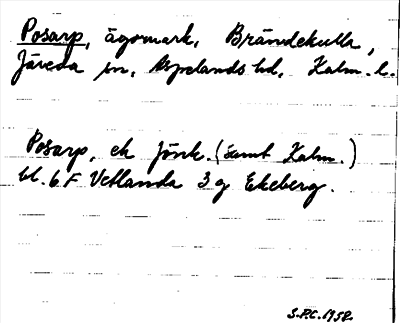 Posarp, ägomark, Brändekulla,
Järeda sn, Aspelands hd, Kalm. l.
Posarp, ek Jönk. (samt Kalm.)
bl. 6 F Vetlanda 3 g Ekeberg.
S.P.C. 1958.